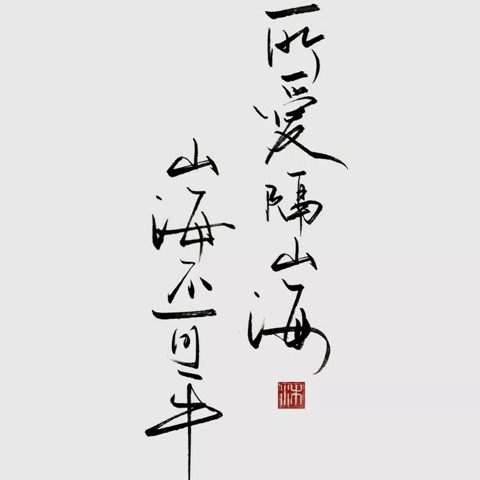 所爱隔山海
山海不可平
沐